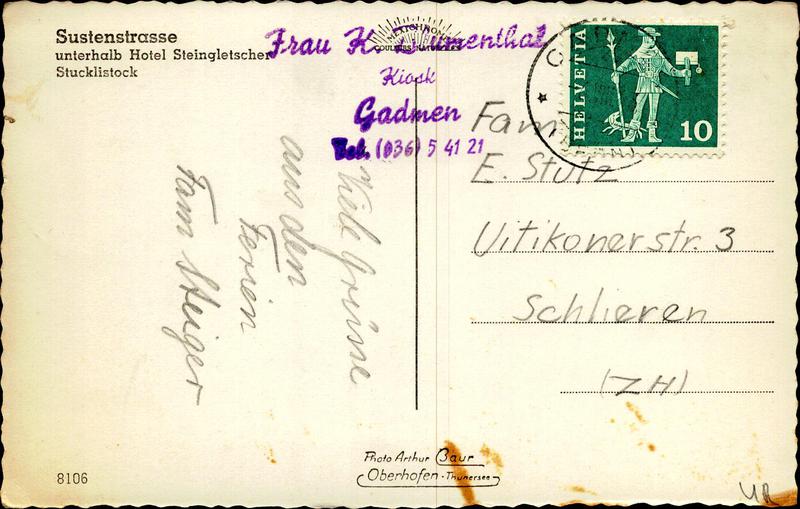 Sustenstrasse
unterhalb Hotel Steingletscher
Stucklistock
Frau K. Blumenthal
Kiosk
Gadmen
Tel. (036) 5 41 21
NEXICHROM
COULEURS NATURELLES
HELVETIA
10
Fam
E. Stutz
Uitikonerstr. 3
Schlieren
(ZH)
Viele Grüsse
aus den
Ferien
Fam Steiger
8106
Photo Arthur Baur
Oberhofen-Thunersee